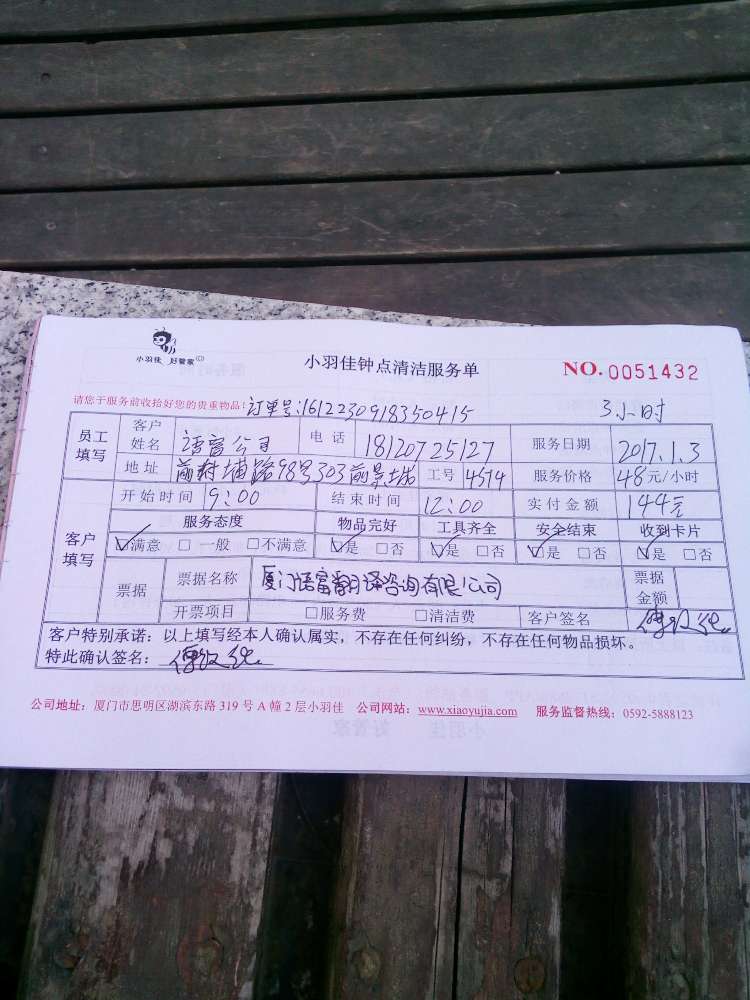 小羽佳 好管家
小羽佳钟点清洁服务单
NO. 0051432
请您于服务前收拾好您的贵重物品! 订单号:1612230918350415 3小时
员工填写 客户姓名 语富公司 电话 18120725127 服务日期 2017.1.3
地址 前村埔路98号303前景城 工号 4574 服务价格 48元/小时
客户填写 开始时间 9:00 结束时间 12:00 实付金额 144元
服务态度 物品完好 工具齐全 安全结束 收到卡片
☑满意 □一般 □不满意 ☑是 □否 ☑是 □否 ☑是 □否 ☑是 □否
票据 票据名称 厦门语富翻译咨询有限公司 票据金额
开票项目 □服务费 □清洁费 客户签名
客户特别承诺:以上填写经本人确认属实,不存在任何纠纷,不存在任何物品损坏。
特此确认签名:
公司地址:厦门市思明区湖滨东路 319 号 A 幢 2 层小羽佳 公司网站:www.xiaoyujia.com 服务监督热线:0592-5888123